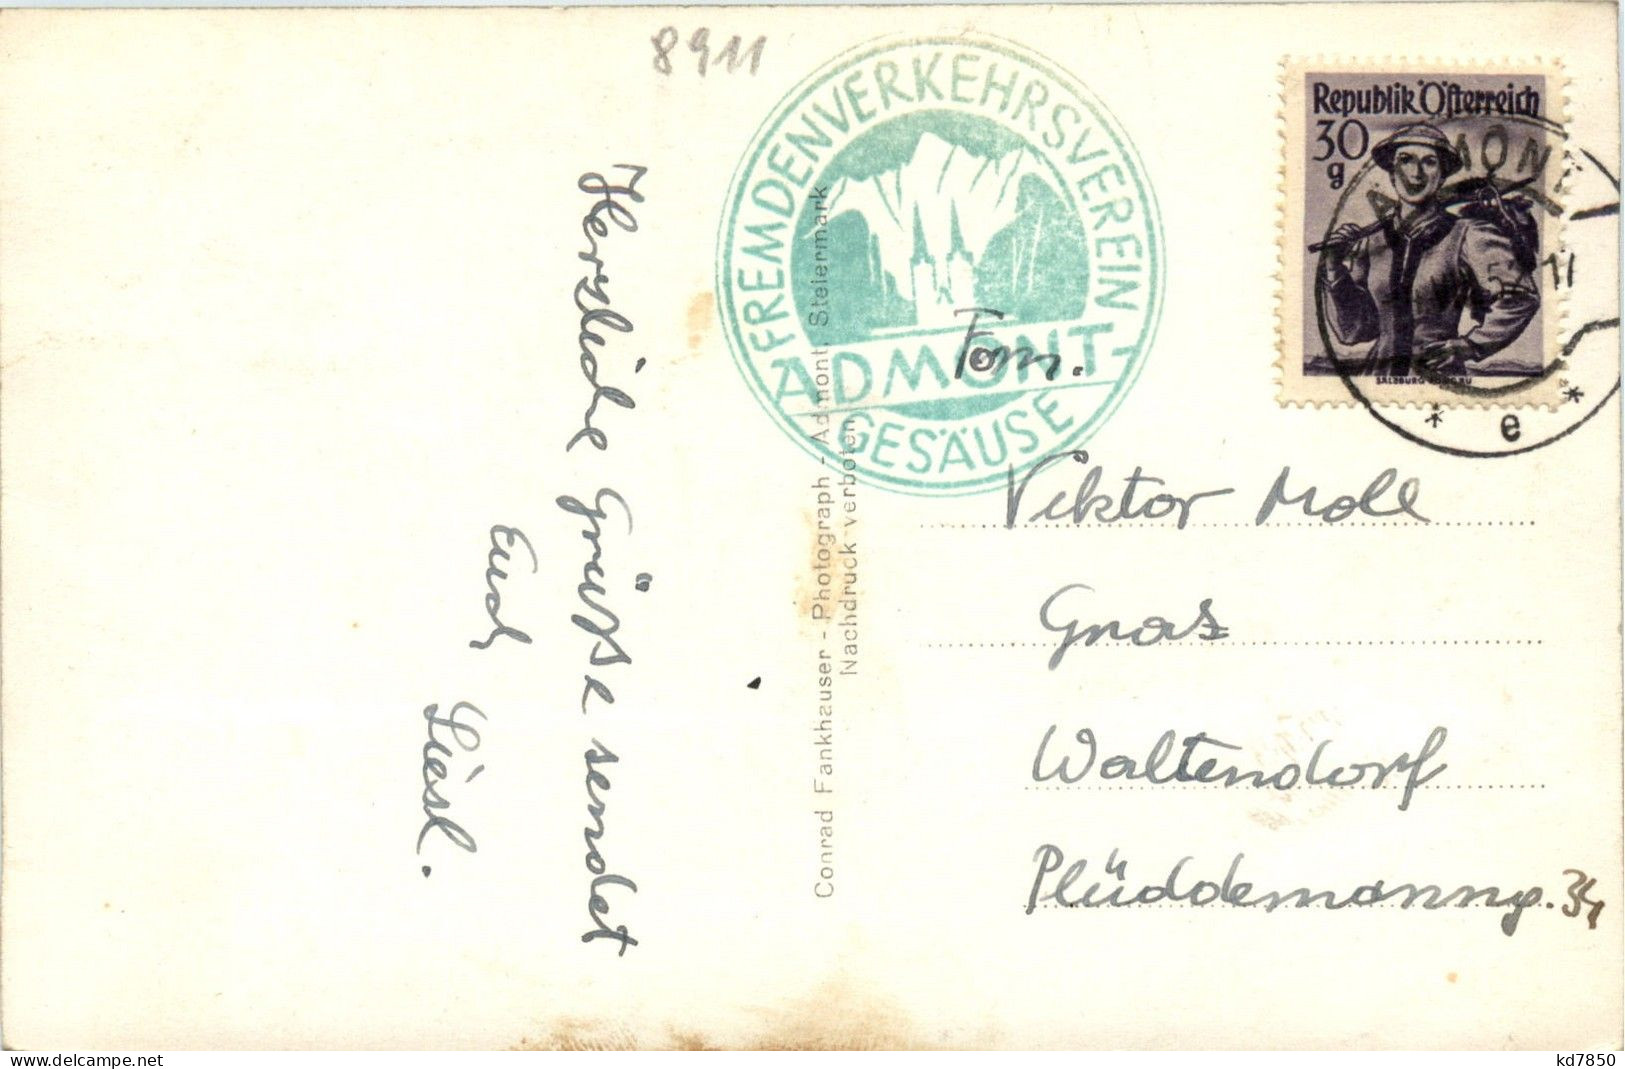 8911
Herzliche Grüsse sendet
Euch
Liesl.
Conrad Fankhauser - Photograph - Admont, Steiermark
Nachdruck verboten
FREMDENVERKEHRSVEREIN
ADMONT-
GESÄUSE
Republik Österreich
30
g
SALZBURG PONGAU
ADMONT
17
* e *
Fam.
Viktor Moll
Graz
Waltendorf
Plüddemanng. 34
www.delcampe.net
kd7850